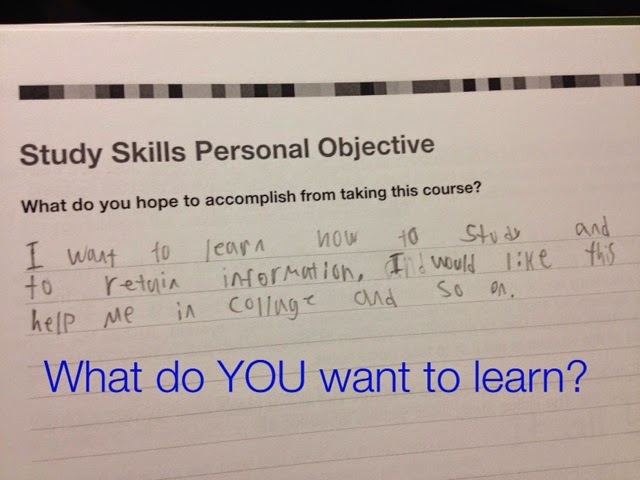 Study Skills Personal Objective
What do you hope to accomplish from taking this course?
I want to learn how to study and
to retain information, I would like this
help me in collage and so on.
What do YOU want to learn?